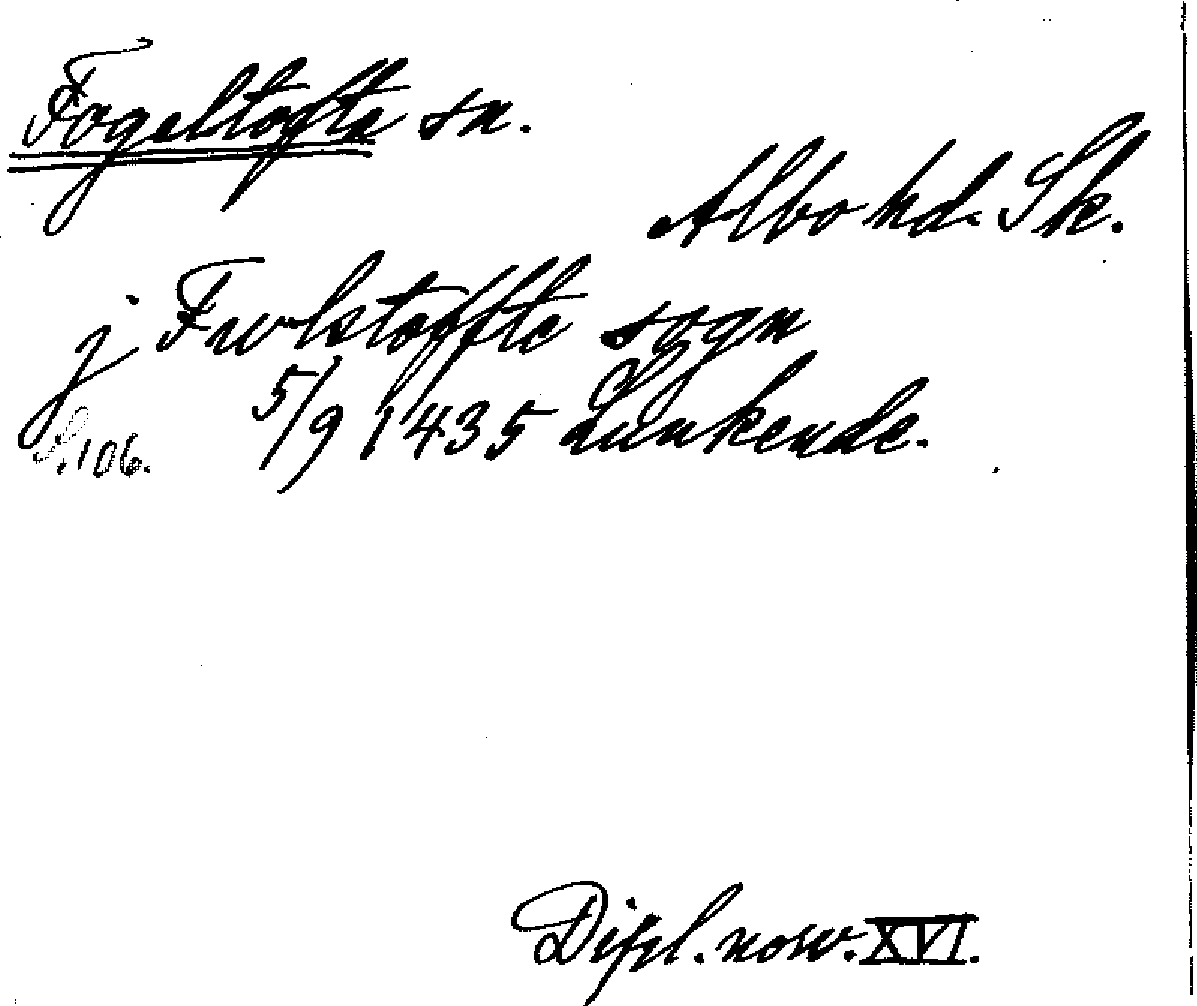 Fogeltofta sn.
Albo hd. Sk.
j Fwlstoffte sogn
5/9 1435 Lunkende.
S. 106.
Dipl. norv. XVI.